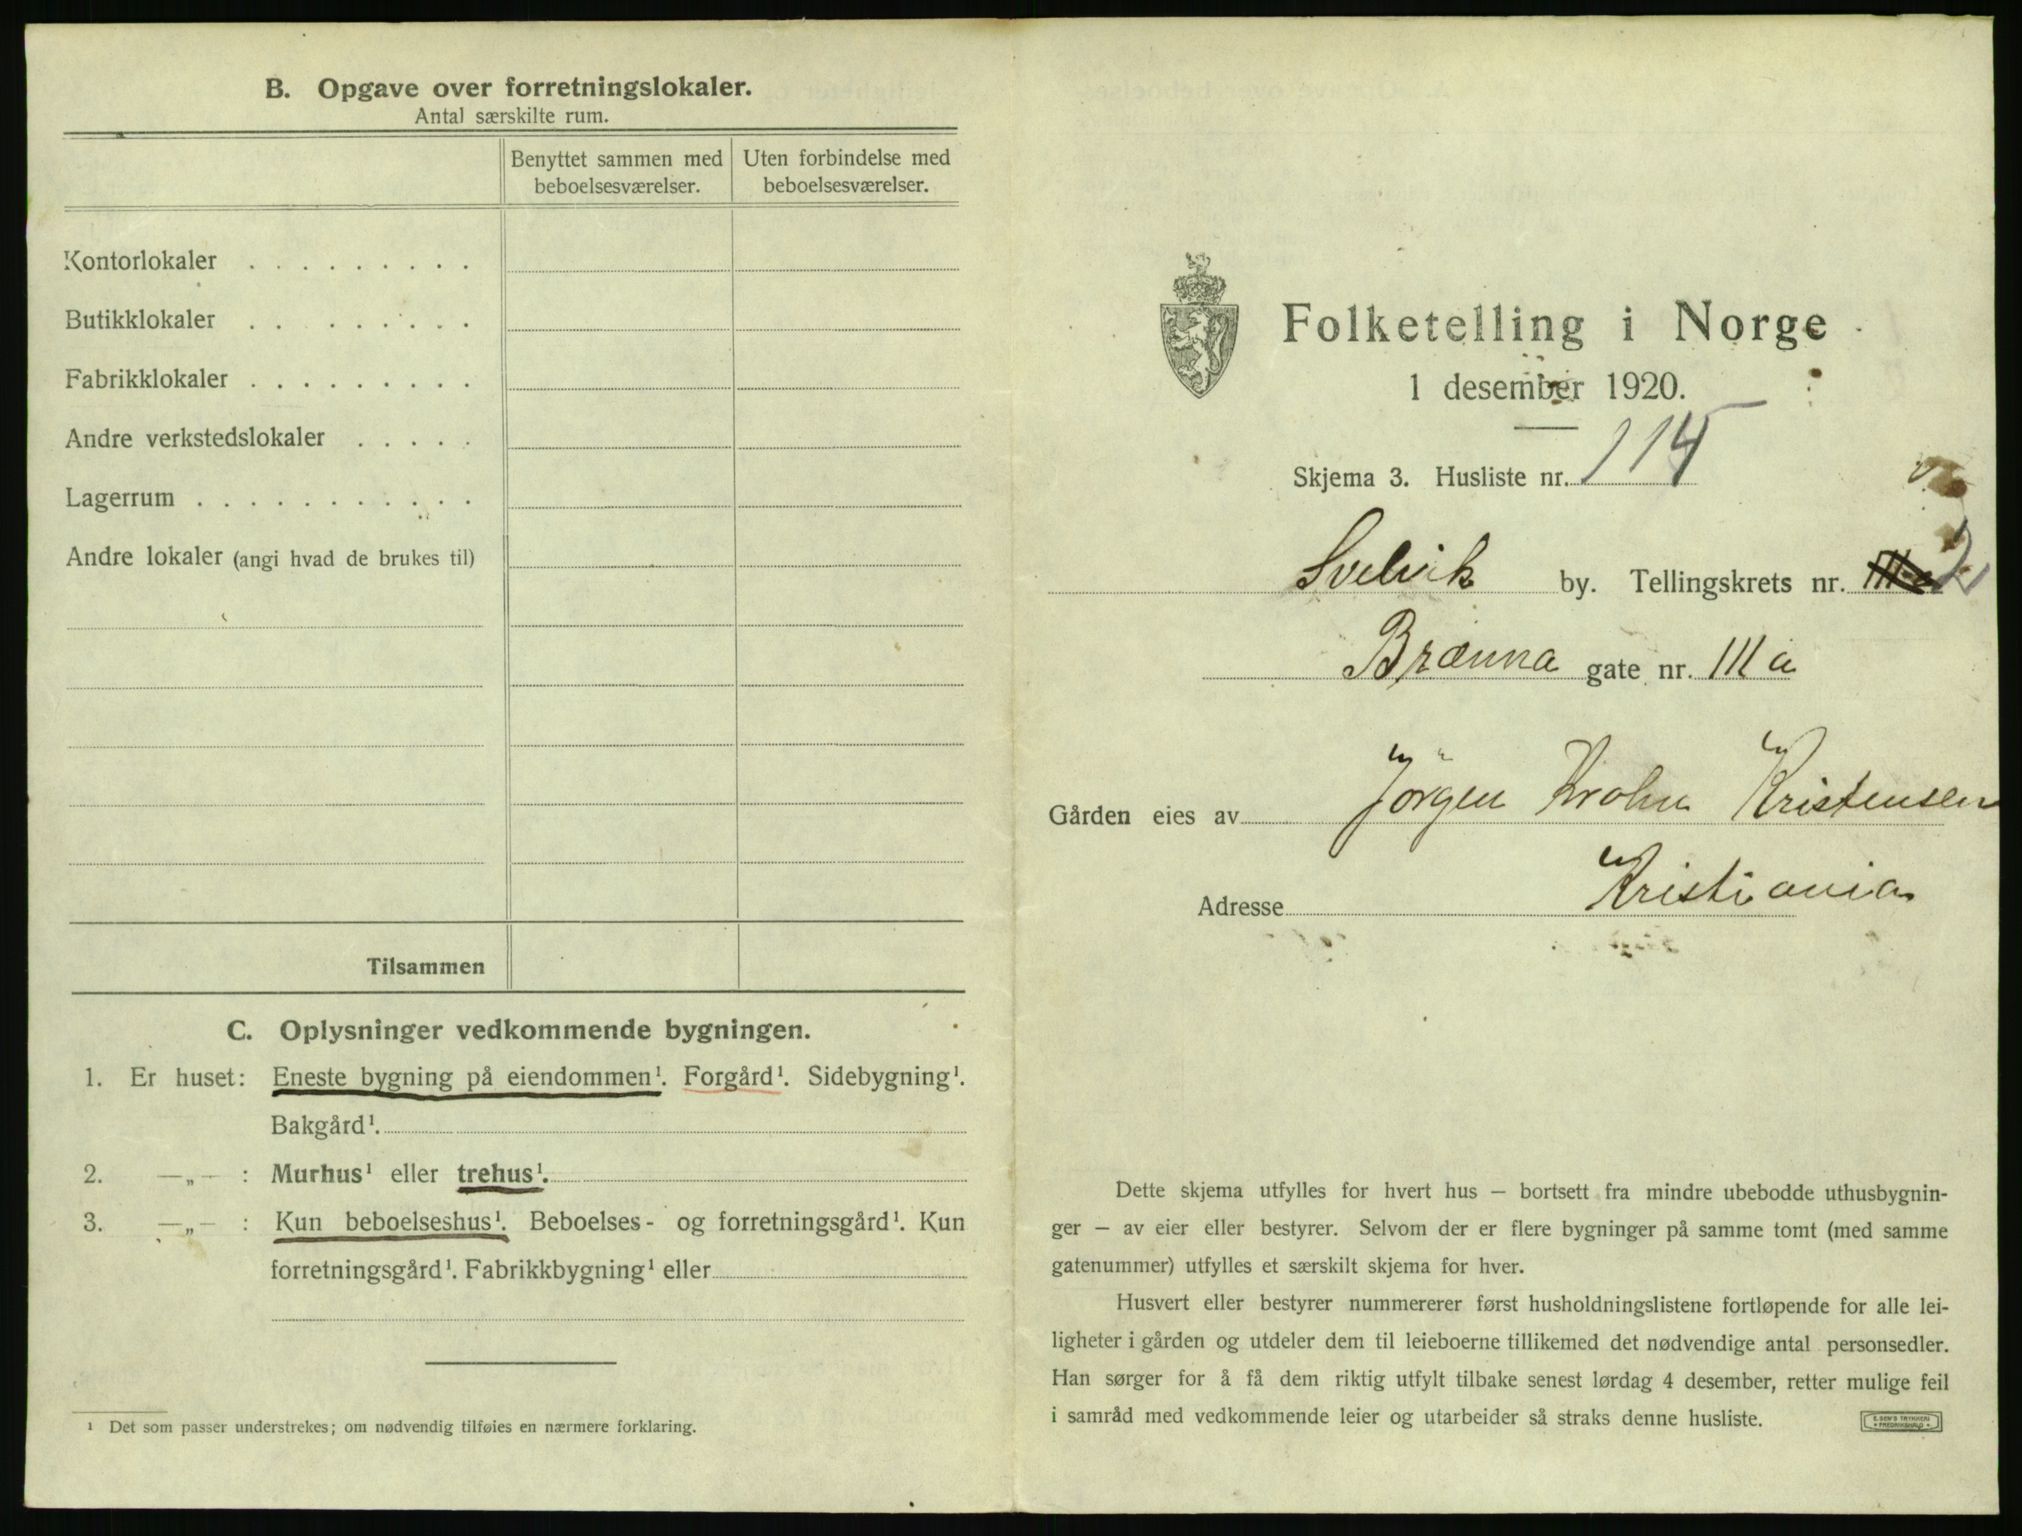 B. Opgave over forretningslokaler.
Antal særskilte rum.
Benyttet sammen med beboelsesværelser.
Uten forbindelse med beboelsesværelser.
Kontorlokaler . . . . . . . . .
Butikklokaler . . . . . . . .
Fabrikklokaler . . . . . . . . .
Andre verkstedslokaler . . . . .
Lagerrum . . . . . . . . . . .
Andre lokaler (angi hvad de brukes til)
Tilsammen
C. Oplysninger vedkommende bygningen.
1. Er huset: Eneste bygning på eiendommen¹. Forgård¹. Sidebygning¹.
Bakgård¹.
2. —„— : Murhus¹ eller trehus¹.
3. —„— : Kun beboelseshus¹. Beboelses- og forretningsgård¹. Kun
forretningsgård¹. Fabrikkbygning¹ eller
¹ Det som passer understrekes; om nødvendig tilføies en nærmere forklaring.
Folketelling i Norge
1 desember 1920.
Skjema 3. Husliste nr. 115
Svelvik by. Tellingskrets nr. 2
Brænna gate nr. III a
Gården eies av Jörgen Krohn Kristensen
Adresse Kristiania
Dette skjema utfylles for hvert hus — bortsett fra mindre ubebodde uthusbygnin-
ger — av eier eller bestyrer. Selvom der er flere bygninger på samme tomt (med samme
gatenummer) utfylles et særskilt skjema for hver.
Husvert eller bestyrer nummererer først husholdningslistene fortløpende for alle lei-
ligheter i gården og utdeler dem til leieboerne tillikemed det nødvendige antal personsedler.
Han sørger for å få dem riktig utfylt tilbake senest lørdag 4 desember, retter mulige feil
i samråd med vedkommende leier og utarbeider så straks denne husliste.
E. SEM'S TRYKKERI
FREDRIKSHALD